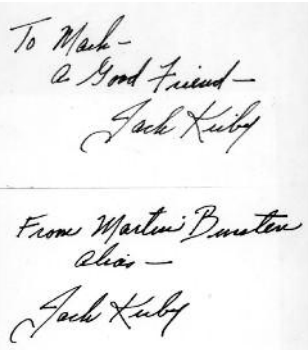 To Mark—
a Good Friend—
Jack Kirby
From Martin Bursten
alias—
Jack Kirby